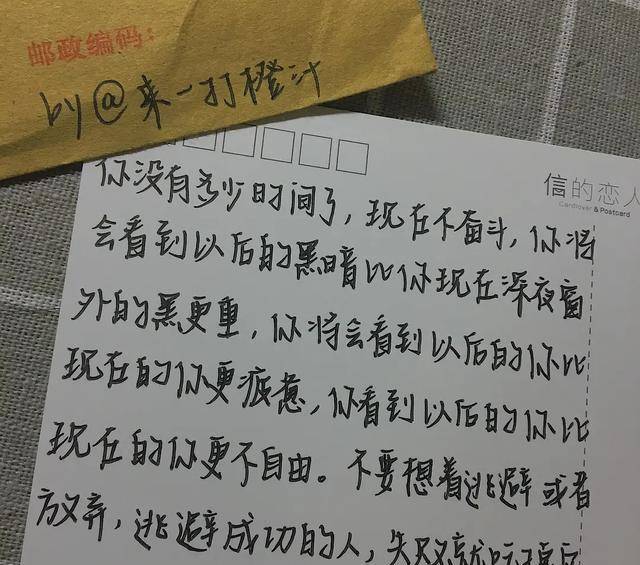 邮政编码：
by@来一打橙汁
信的恋人
Cardlover & Postcard
你没有多少时间了，现在不奋斗，你将
会看到以后的黑暗比你现在深夜窗
外的黑更重，你将会看到以后的你比
现在的你更疲惫，你看到以后的你比
现在的你更不自由。不要想着逃避或者
放弃，逃避成功的人，失败就